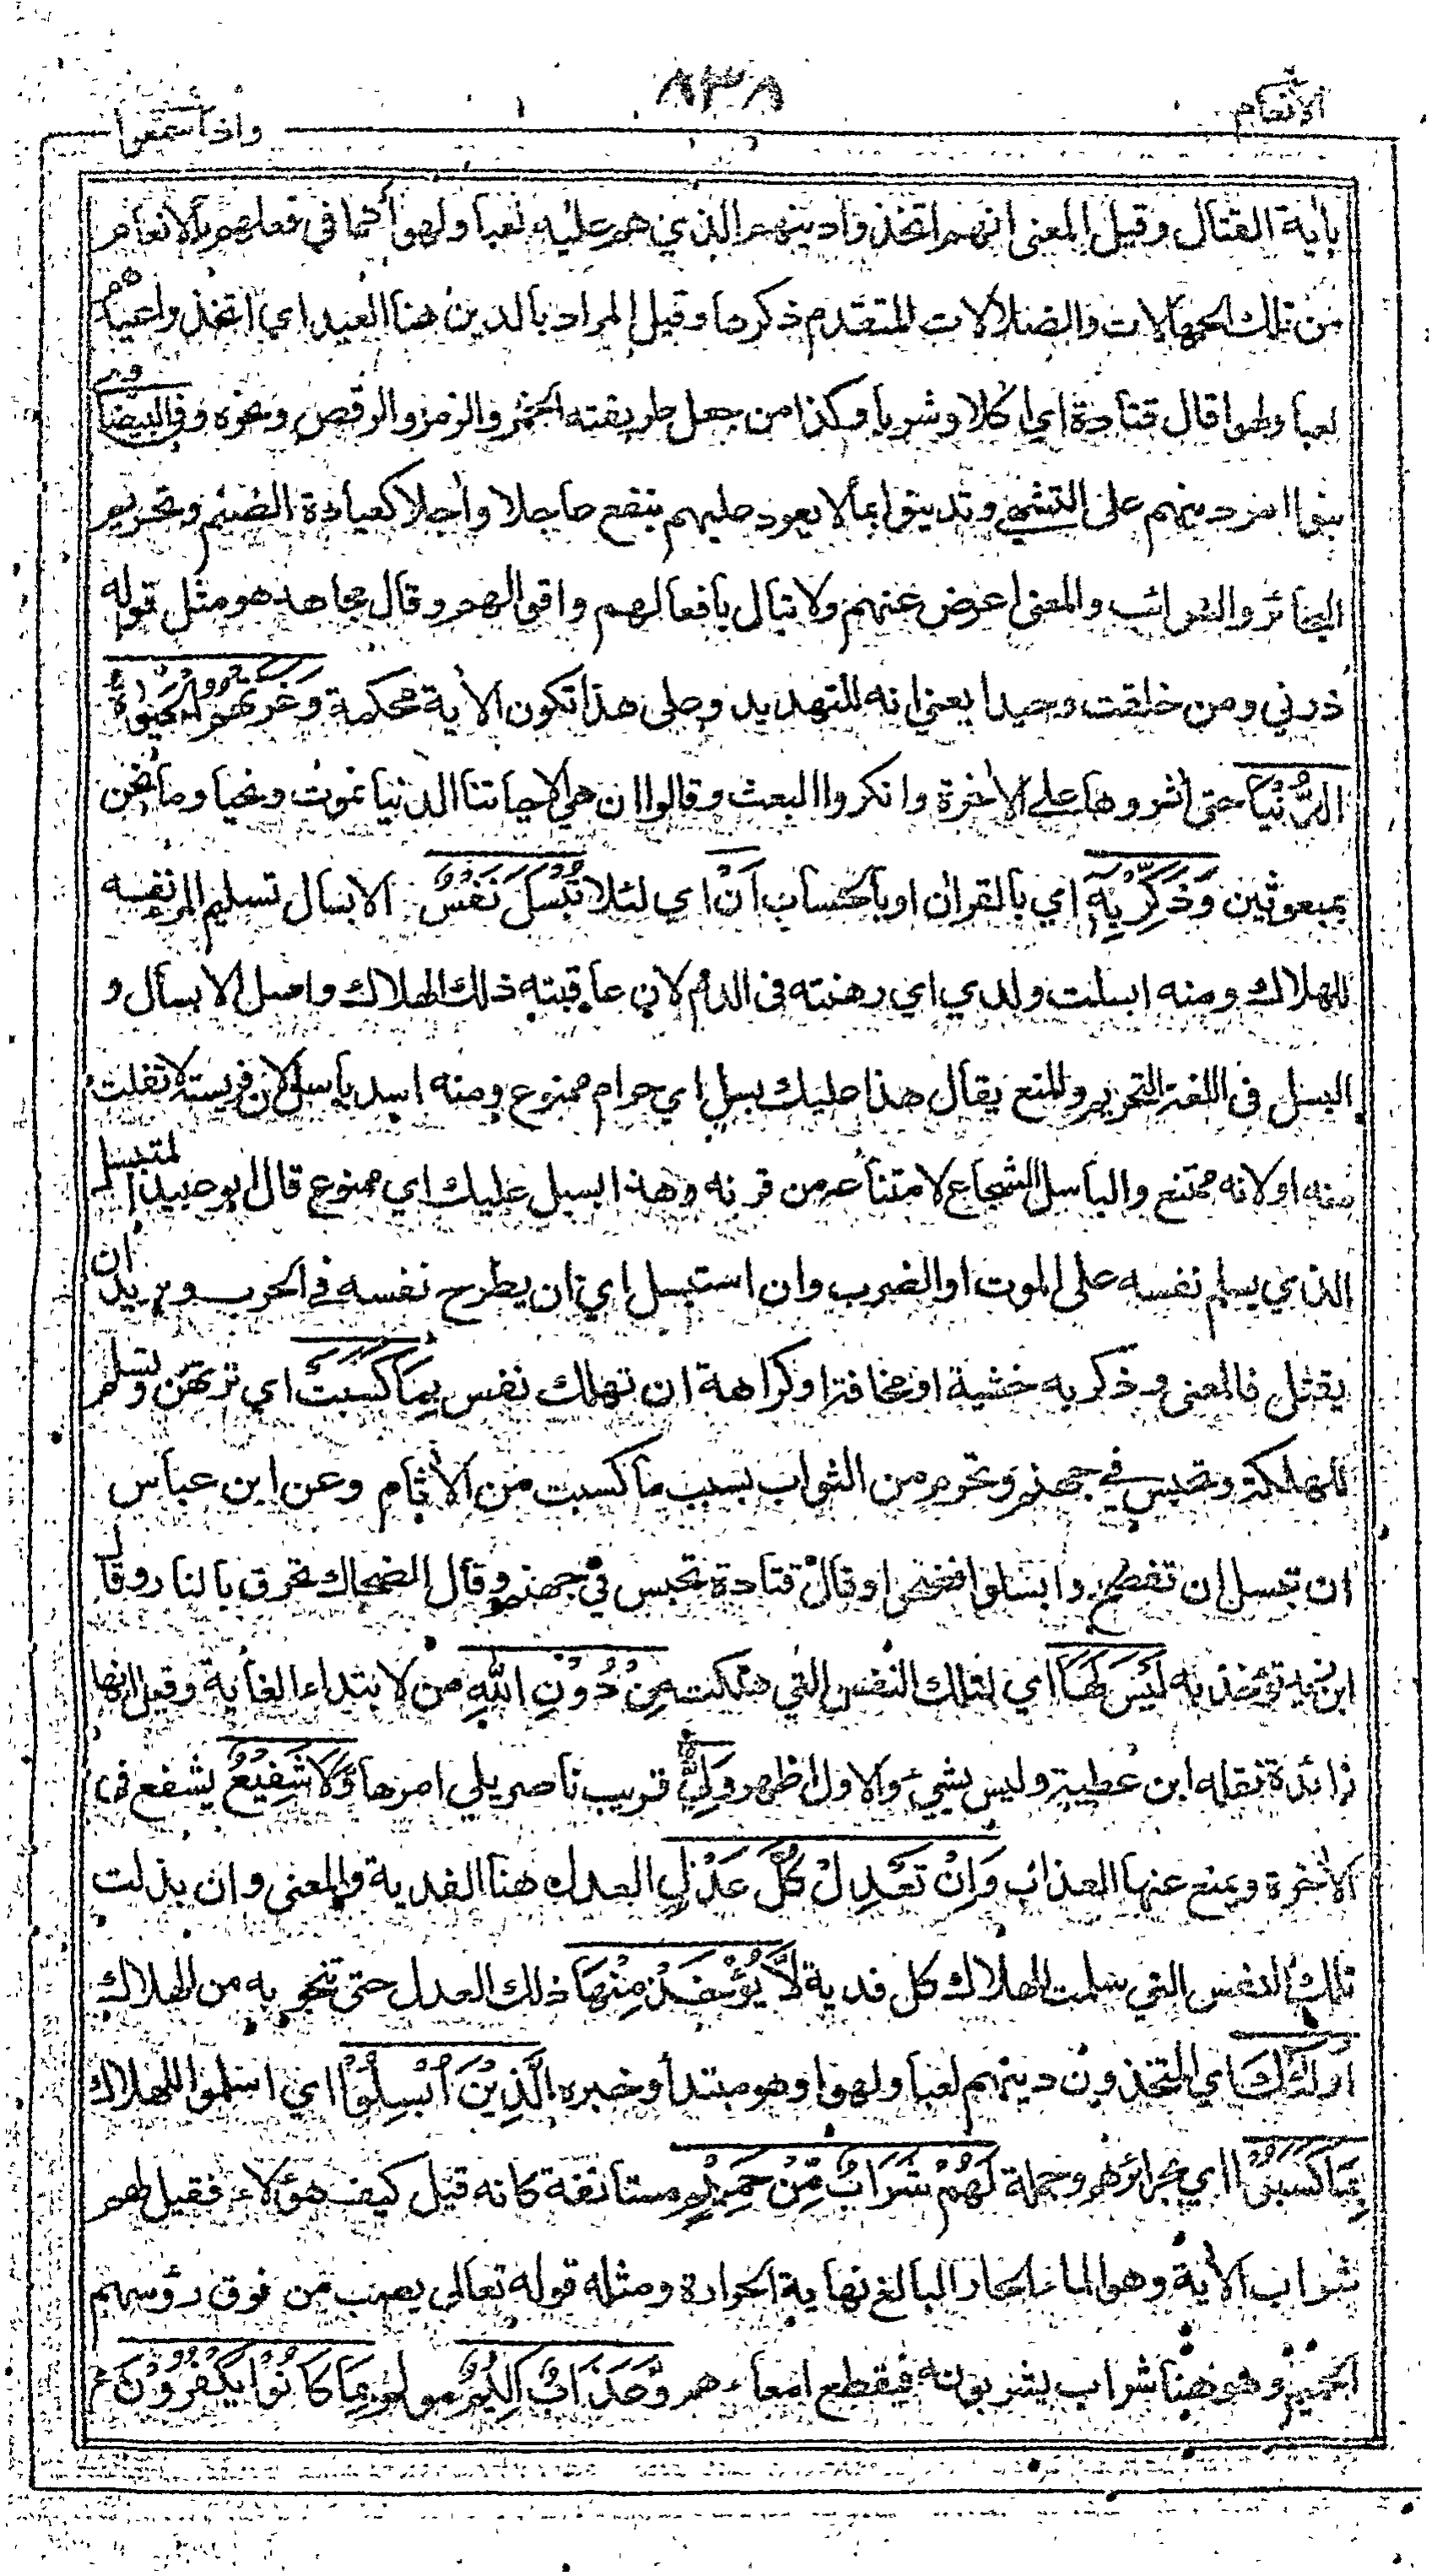 الانعام
٨٣٨
واذا سمعوا
باية القتال وقيل المعنى انهم اتخذوا دينهم الذي هم عليه لعبا ولهوا كما في فعلهم بالانعام
من تلك الجهالات والضلالات المتقدم ذكرها وقيل المراد بالدين هنا العيد اي اتخذوا عيدهم
لعبا ولهوا قال قتادة اي اكلا وشربا وكذا من جعل طريقته الخمر والزمر والرقص ونحوه وفي البيضاوي
بنوا امر دينهم على التشهي وتدينوا بما لا يعود عليهم بنفع عاجلا واجلا كعبادة الصنم وتحريم
البحائر والسوائب والمعنى اعرض عنهم ولا تبال بافعالهم واقوالهم وقال مجاهد هو مثل قوله
ذرني ومن خلقت وحيدا يعني انه للتهديد وعلى هذا تكون الأية محكمة وَغَرَّتْهُمُ الْحَيٰوةُ
الدُّنْيَا حتى اثروها على الأخرة وانكروا البعث وقالوا ان هي الا حياتنا الدنيا نموت ونحيا وما نحن
بمبعوثين وَذَكِّرْ بِهٖ اي بالقران او بالحساب اَنْ اي لئلا تُبْسَلَ نَفْسٌ الابسال تسليم المرء نفسه
للهلاك ومنه ابسلت ولدي اي رهنته في الدم لان عاقبته ذلك الهلاك واصل الابسال و
البسل في اللغة التحريم والمنع يقال هذا عليك بسل اي حرام ممنوع ومنه اسد باسل لان فريسته لا تفلت
منه او لانه ممتنع والباسل الشجاع لامتناعه من قرنه وهذا بسل عليك اي ممنوع قال ابو عبيد المتبسل
الذي يسلم نفسه على الموت او الضرب وان استبسل اي ان يطرح نفسه في الحرب ويريد ان
يقتل فالمعنى وذكر به خشية او مخافة او كراهة ان تهلك نفس بِمَا كَسَبَتْ اي ترتهن وتسلم
للهلكة وتحبس في جهنم وتحرم من الثواب بسبب ما كسبت من الأثام وعن ابن عباس
ان تبسل ان تفضح وابسلوا فضحوا وقال قتادة تحبس في جهنم وقال الضحاك تحرق بالنار وقال
ابن زيد تؤخذ به لَيْسَ لَهَا اي لتلك النفس التي هلكت مِنْ دُوْنِ اللّٰهِ من لابتداء الغاية وقيل انها
زائدة نقله ابن عطية وليس بشيء والاول اظهر وَلِيٌّ قريب ناصر يلي امرها وَّلَا شَفِيْعٌ يشفع في
الأخرة ويمنع عنها العذاب وَاِنْ تَعْدِلْ كُلَّ عَدْلٍ العدل هنا الفدية والمعنى وان بذلت
تلك النفس التي سلمت للهلاك كل فدية لَّا يُؤْخَذْ مِنْهَا ذلك العدل حتى تنجو به من الهلاك
اُولٰٓئِكَ اي المتخذون دينهم لعبا ولهوا وهو مبتدأ وخبره الَّذِيْنَ اُبْسِلُوْا اي اسلموا للهلاك
بِمَا كَسَبُوْا اي بجرائرهم وجملة لَهُمْ شَرَابٌ مِّنْ حَمِيْمٍ مستأنفة كانه قيل كيف هؤلاء فقيل لهم
شراب الأية وهو الماء الحار البالغ نهاية الحرارة ومثله قوله تعالى يصب من فوق رؤسهم
الحميم وهو هنا شراب يشربونه فيقطع امعاءهم وَّعَذَابٌ اَلِيْمٌ مولم بِمَا كَانُوْا يَكْفُرُوْنَ ع